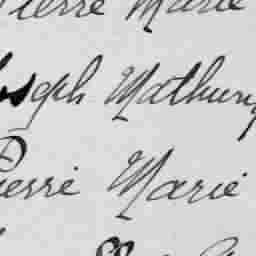 Pierre Marie
Joseph Mathurin
Pierre Marie